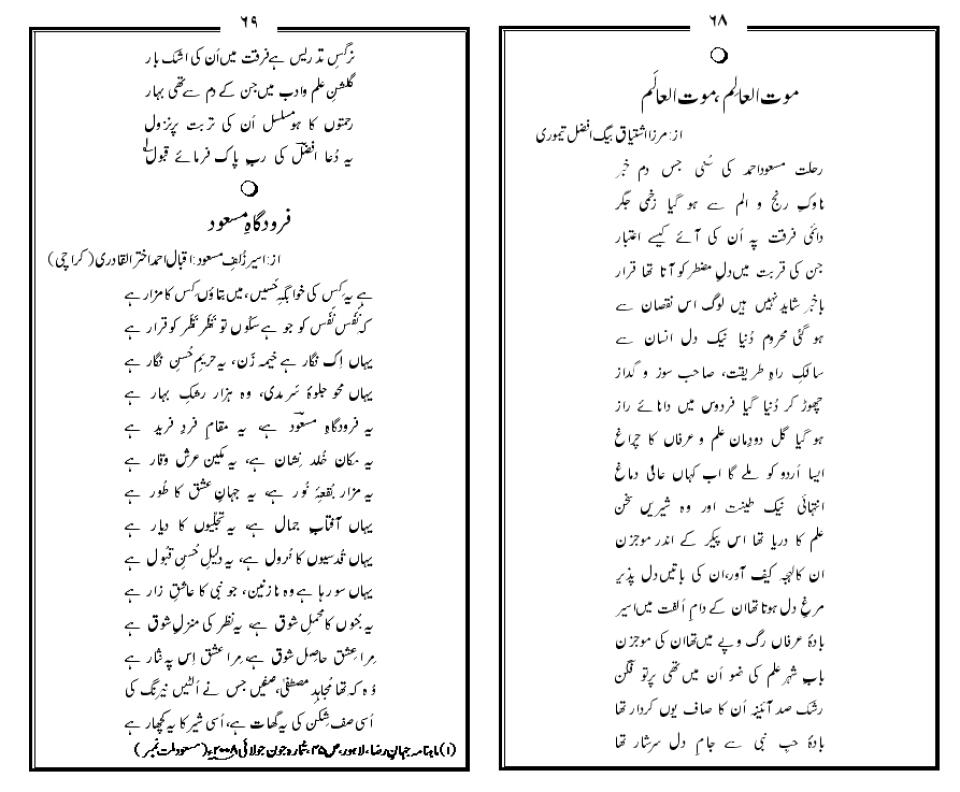 ۶۸
موت العالِم ،موت العالَم
از: مرزا اشتیاق بیگ افضل تیموری
رحلت مسعود احمد کی سُنی جس دم خبر
ناوکِ رنج و الم سے ہو گیا زخمی جگر
دائمی فرقت پہ اُن کی آئے کیسے اعتبار
جن کی قربت میں دلِ مضطر کو آتا تھا قرار
باخبر شاید نہیں ہیں لوگ اس نقصان سے
ہو گئی محروم دُنیا نیک دل انسان سے
سالکِ راہِ طریقت، صاحب سوز و گداز
چھوڑ کر دُنیا گیا فردوس میں دانائے راز
ہو گیا گل دودمان علم و عرفاں کا چراغ
ایسا اُردو کو ملے گا اب کہاں عالی دماغ
انتہائی نیک طینت اور وہ شیریں سخن
علم کا دریا تھا اس پیکر کے اندر موجزن
ان کا لہجہ کیف آور،ان کی باتیں دل پذیر
مرغِ دل ہوتا تھا ان کے دامِ اُلفت میں اسیر
بادۂ عرفاں رگ وپے میں تھا ان کی موجزن
بابِ شہرِ علم کی ضو اُن میں تھی پرتو فگن
رشک صد آئینہ اُن کا صاف یوں کردار تھا
بادۂ حبِ نبی سے جامِ دل سرشار تھا
۶۹
نرگسِ تدریس ہے فرقت میں اُن کی اشک بار
گلشنِ علم وادب میں جن کے دم سے تھی بہار
رحمتوں کا ہو مسلسل اُن کی تربت پر نزول
یہ دُعا افضلؔ کی ربِ پاک فرمائے قبول۱
فرودگاہِ مسعود
از: اسیر زُلفِ مسعود: اقبال احمد اختر القادری (کراچی)
ہے یہ کِس کی خوابگہِ حَسیں، میں بتاؤں کِس کا مزار ہے
کہ نَفَس نَفَس کو جو ہے سکُوں تو نظَر نظَر کو قرار ہے
یہاں اِک نگار ہے خیمہ زَن، یہ حریمِ حُسنِ نگار ہے
یہاں محوِ جلوۂ سَرمدی، وہ ہزار رشکِ بہار ہے
یہ فرودگاہِ مسعوؔد ہے یہ مقامِ فردِ فرید ہے
یہ مکان خُلد نِشان ہے، یہ مکین عرش وقار ہے
یہ مزار بُقعۂ نُور ہے یہ جہانِ عشق کا طُور ہے
یہاں آفتابِ جمال ہے، یہ تجلّیوں کا دیار ہے
یہاں قُدسیوں کا نُرول ہے، یہ دلیلِ حُسنِ قبُول ہے
یہاں سو رہا ہے وہ نازنین، جو نبی کا عاشقِ زار ہے
یہ جُنوں کا محمل شوق ہے یہ نظر کی منزلِ شوق ہے
مِرا عِشق حاصل شوق ہے، مِرا عشق اِس پہ نثار ہے
وُہ کہ تھا مُجاہدِ مصطفیٰ، صفیں جس نے اُلٹیں نیرنگ کی
اُسی صف شِکن کی یہ گھات ہے، اُسی شیر کا یہ کچھار ہے
(۱) ماہنامہ جہانِ رضا، لاہور، ص ۲۵، شمارہ جون جولائی ۲۰۰۸ء (مسعود ملت نمبر)